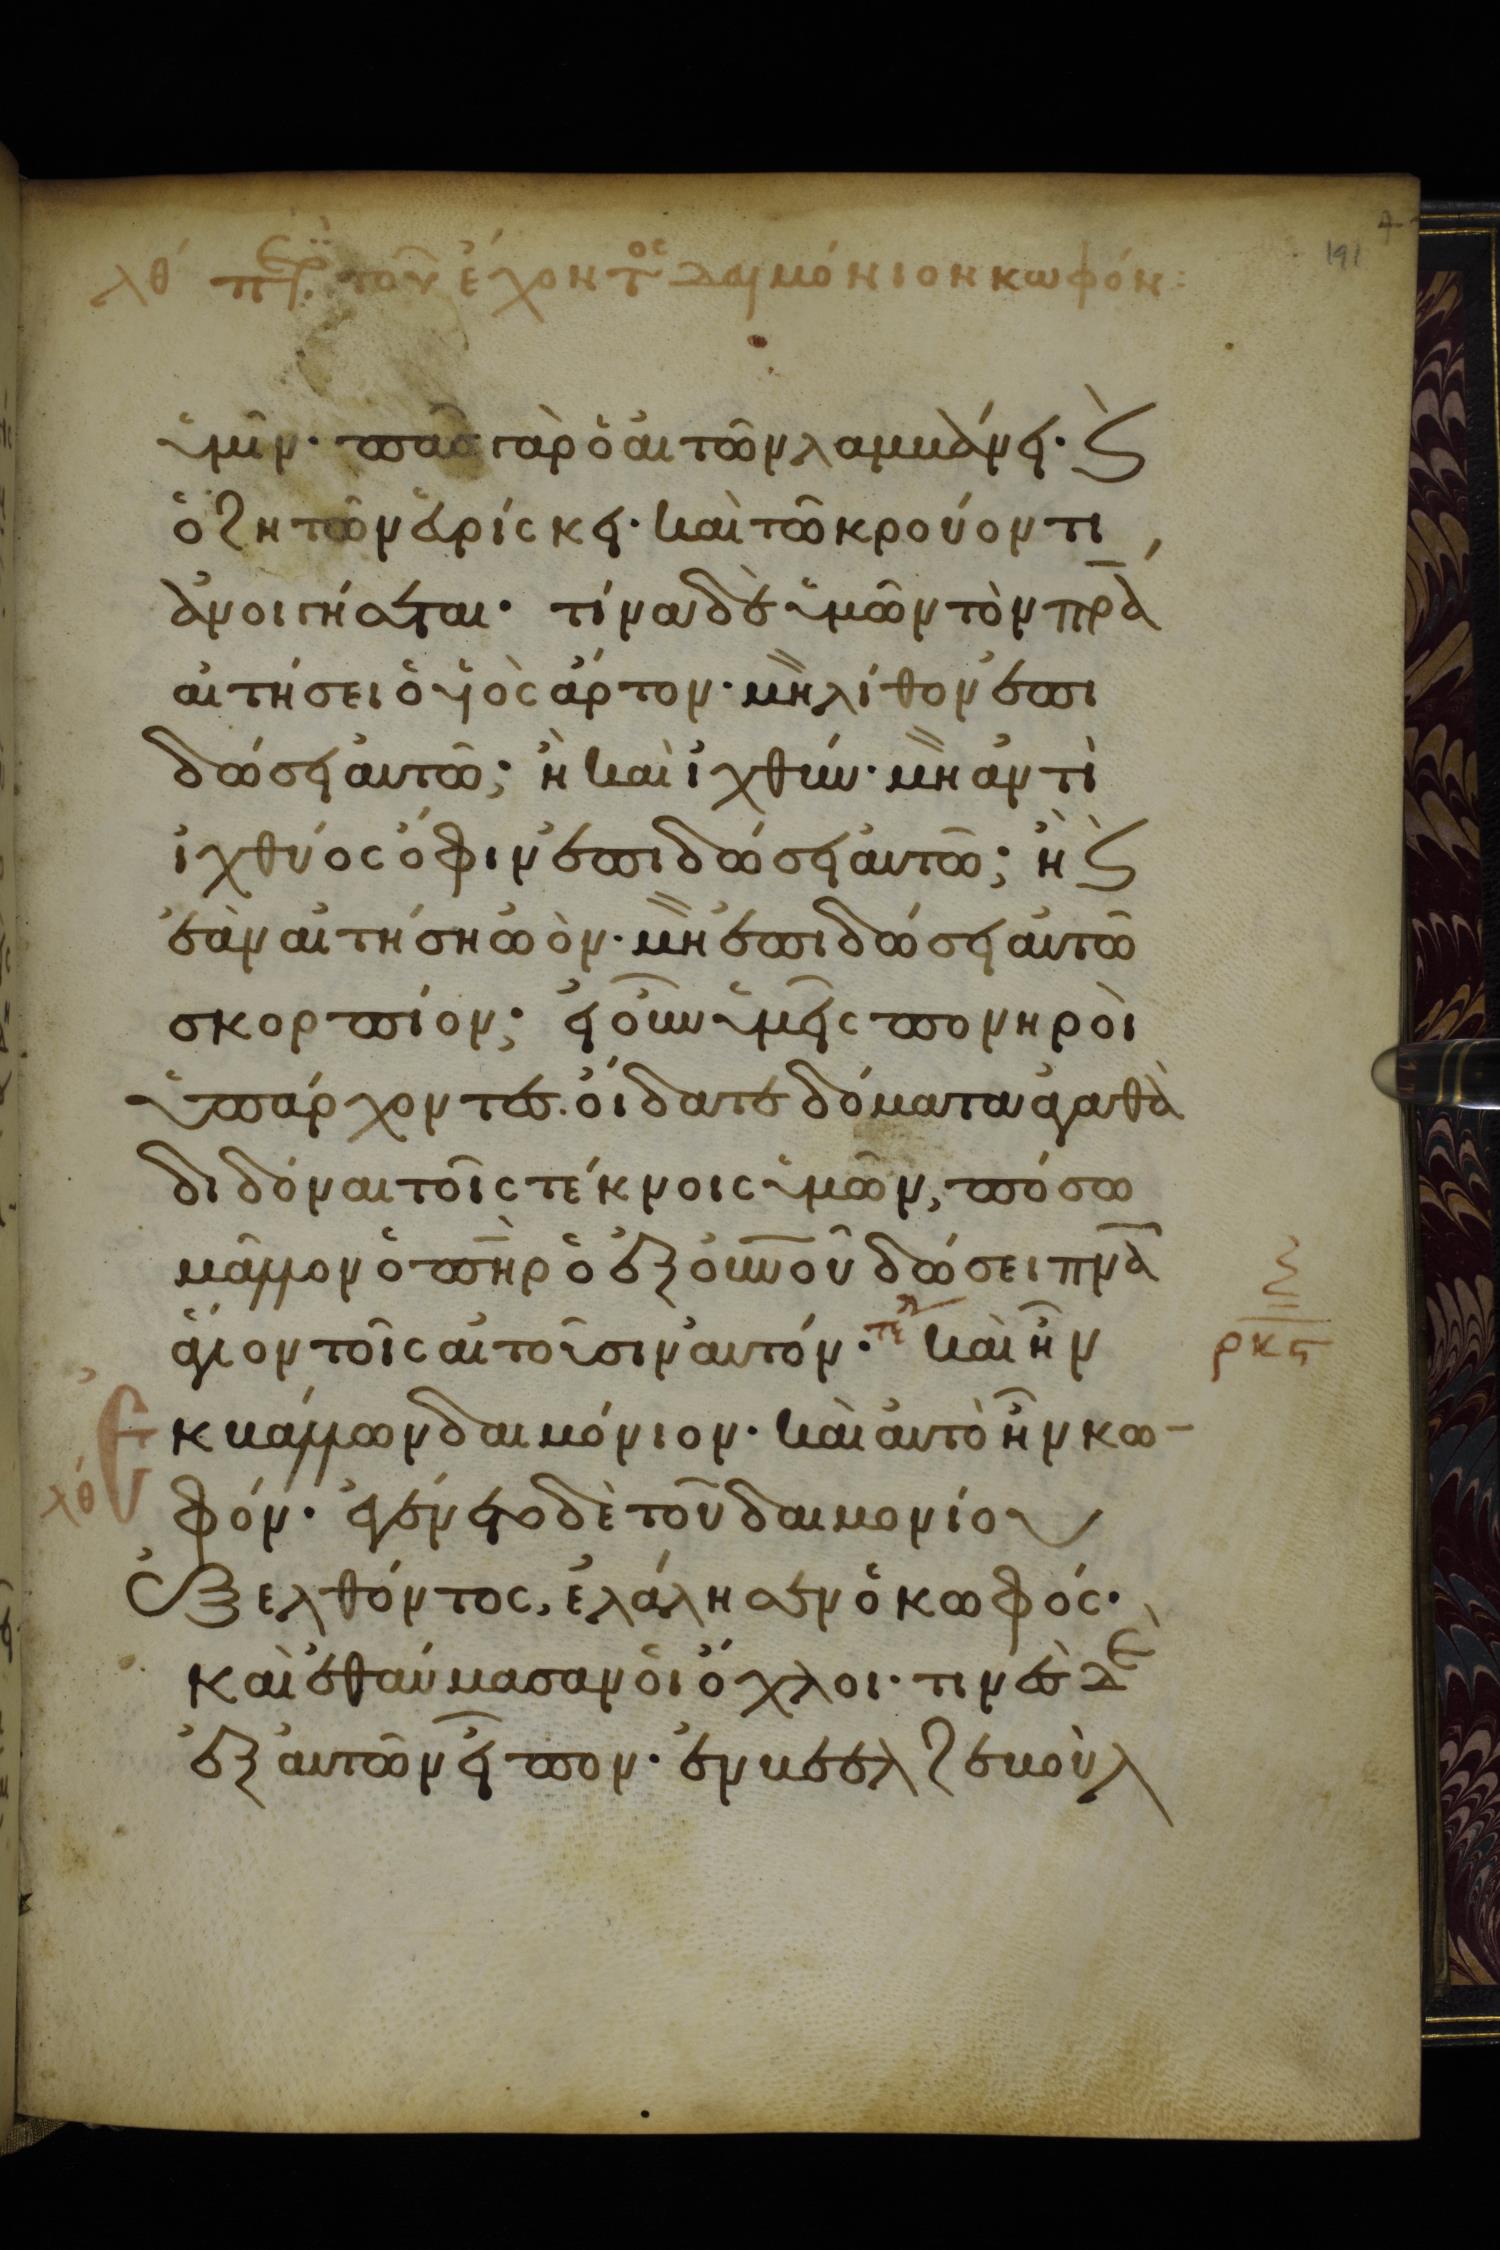 λθ περὶ τοῦ ἔχοντος δαιμόνιον κωφόν:
191
ὑμῖν· πᾶς γὰρ ὁ αἰτῶν λαμβάνει· ϗ
ὁ ζητῶν εὑρίσκει· καὶ τῶ κρούοντι
ἀνοιγήσεται· τίνα δὲ ὑμῶν τὸν πρ̅α
αἰτήσει ὁ υἱὸς ἄρτον· μὴ λίθον ἐπι
δώσει αὐτῶ; ἢ καὶ ἰχθύν· μὴ ἀντὶ
ἰχθύος ὄφιν ἐπιδώσει αὐτῶ; ἢ ϗ
ἐὰν αἰτήση ὠὸν· μὴ ἐπιδώσει αὐτῶ
σκορπίον; εἰ οὖν ὑμεῖς πονηροὶ
ὑπάρχοντες. οἴδατε δόματα ἀγαθὰ
διδόναι τοῖς τέκνοις ὑμῶν, πόσω
μᾶλλον ὁ πη̅ρ ὁ ἐξ ου̅νοῦ δώσει πν̅α
ἅγιον τοῖς αἰτοῦσιν αὐτόν· τε καὶ ἦν
ἐκβάλλων δαιμόνιον· καὶ αὐτὸ ἦν κω-
ρκς
λθ
φόν· ἐγένετο δὲ τοῦ δαιμονίου
ἐξελθόντος, ἐλάλησεν ὁ κωφός·
καὶ ἐθαύμασαν οἱ ὄχλοι· τινὲς δὲ
ἐξ αὐτῶν εἶπον· ἐν βεελζεβοὺλ